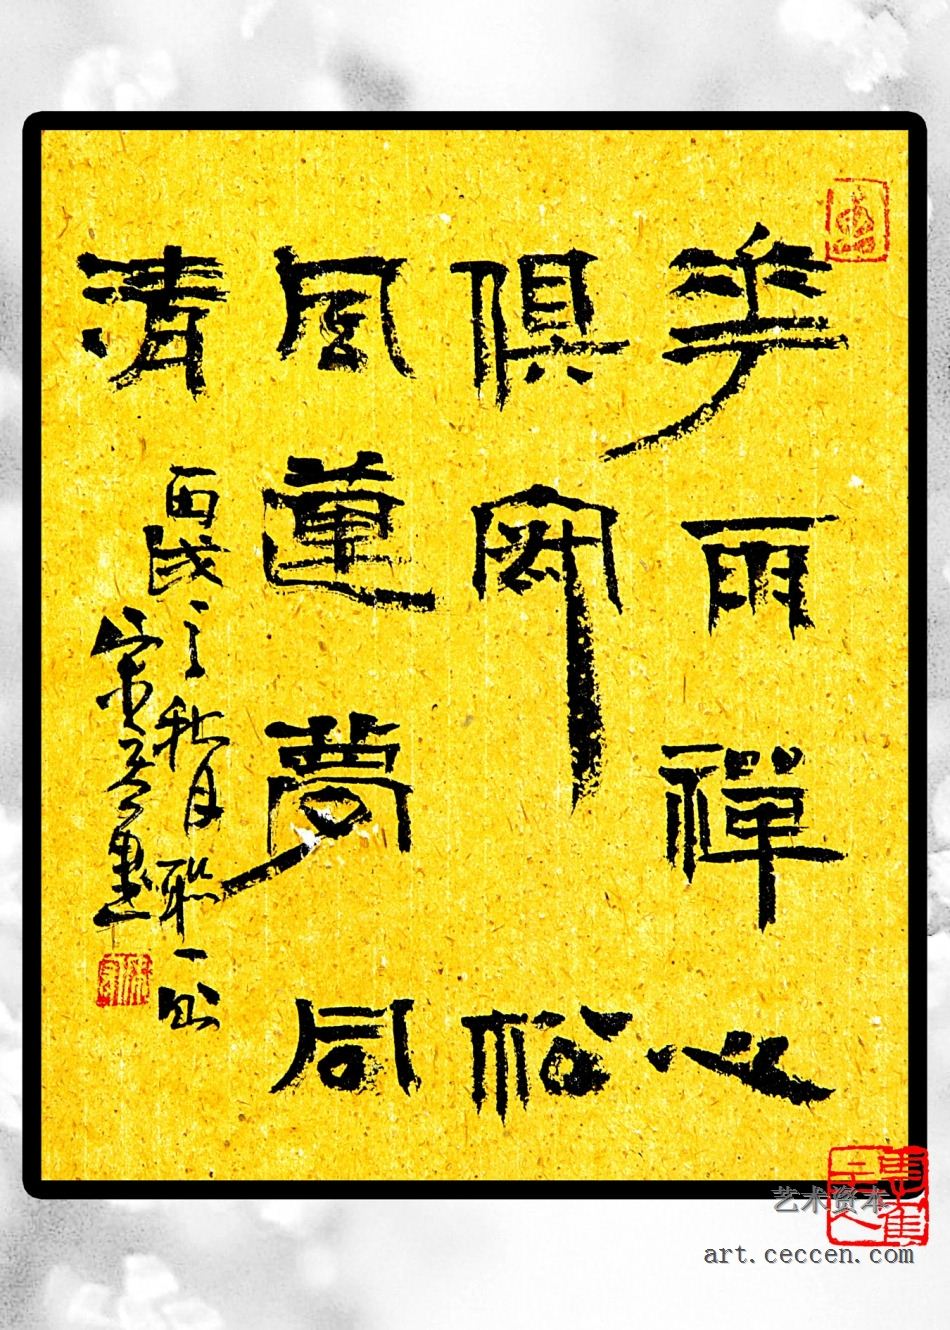 華雨禪心
俱寂松
風蓮夢同
清
丙戌之秋月聯一
艺术资本
art.ceccen.com